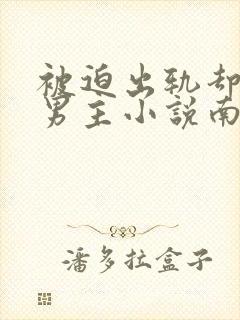 被迫出轨却
男主小説南
潘多拉盒子